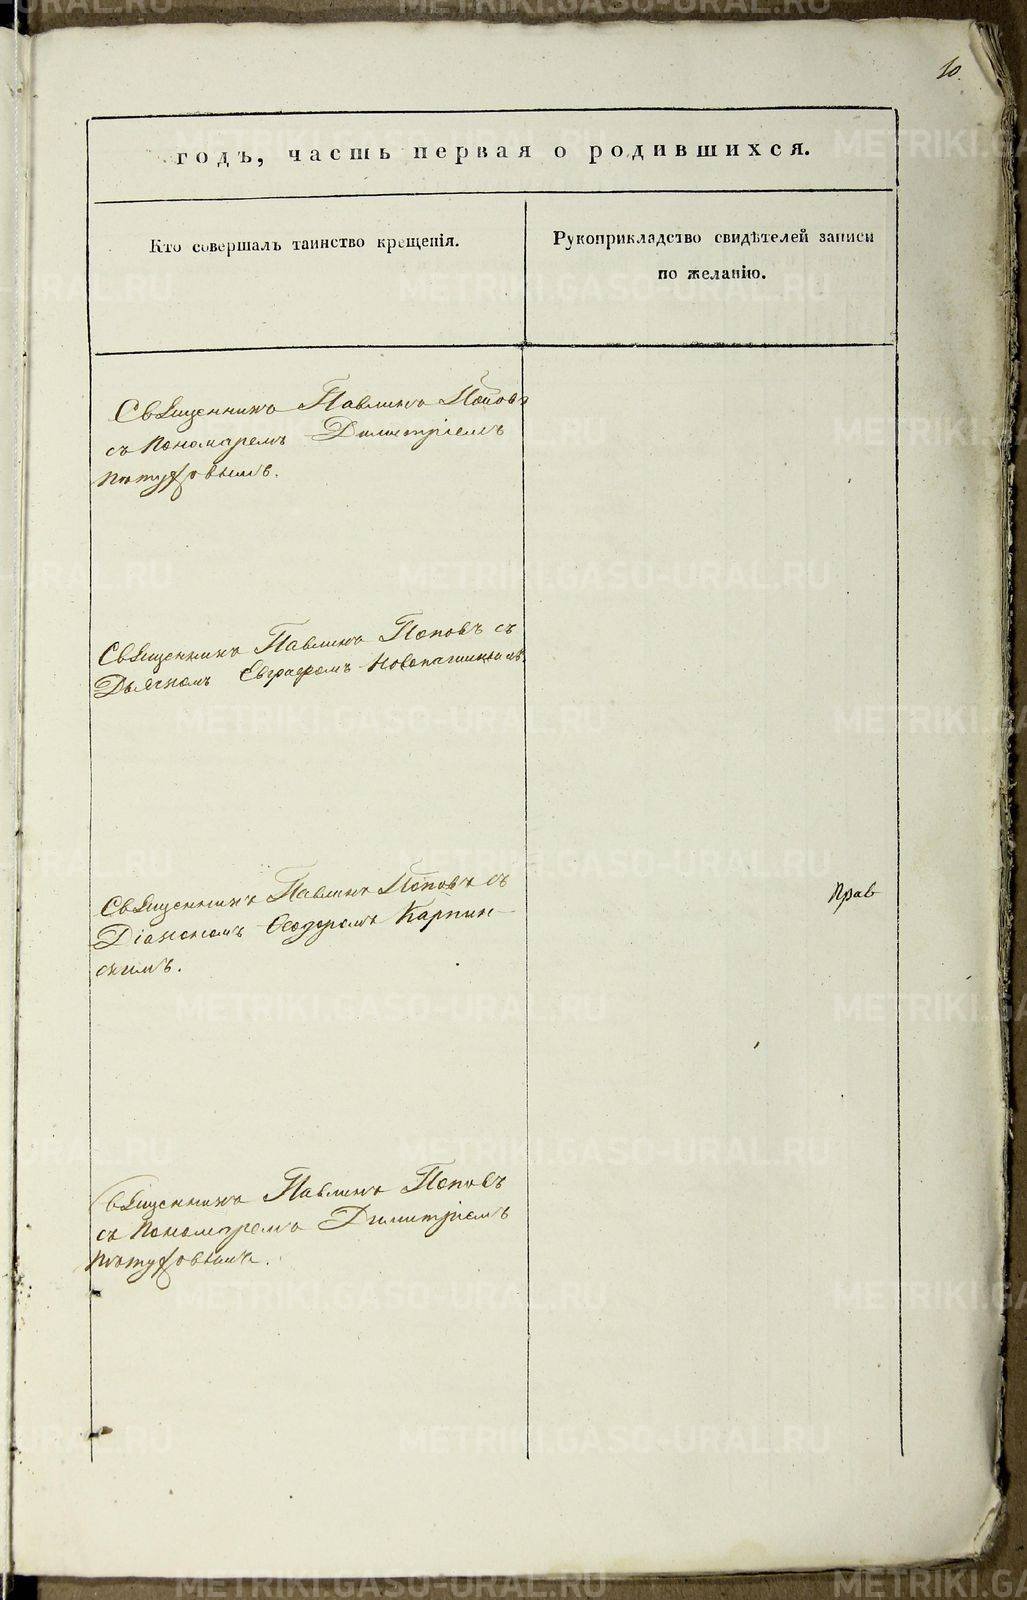 10.
годъ, часть первая о родившихся.
Кто совершалъ таинство крещенія.
Рукоприкладство свидѣтелей записи
по желанію.
Священникъ Павлинъ Поповъ
съ Пономаремъ Димитріемъ
Пѣтуховымъ.
Священникъ Павлинъ Поповъ съ
Дьячкомъ Евграфомъ Новопашинымъ
Священникъ Павлинъ Поповъ съ
Діакономъ Ѳеодоромъ Карпин-
скимъ.
Прав
Священникъ Павлинъ Поповъ
съ Пономаремъ Димитріемъ
Пѣтуховымъ.
METRIKI.GASO-URAL.RU